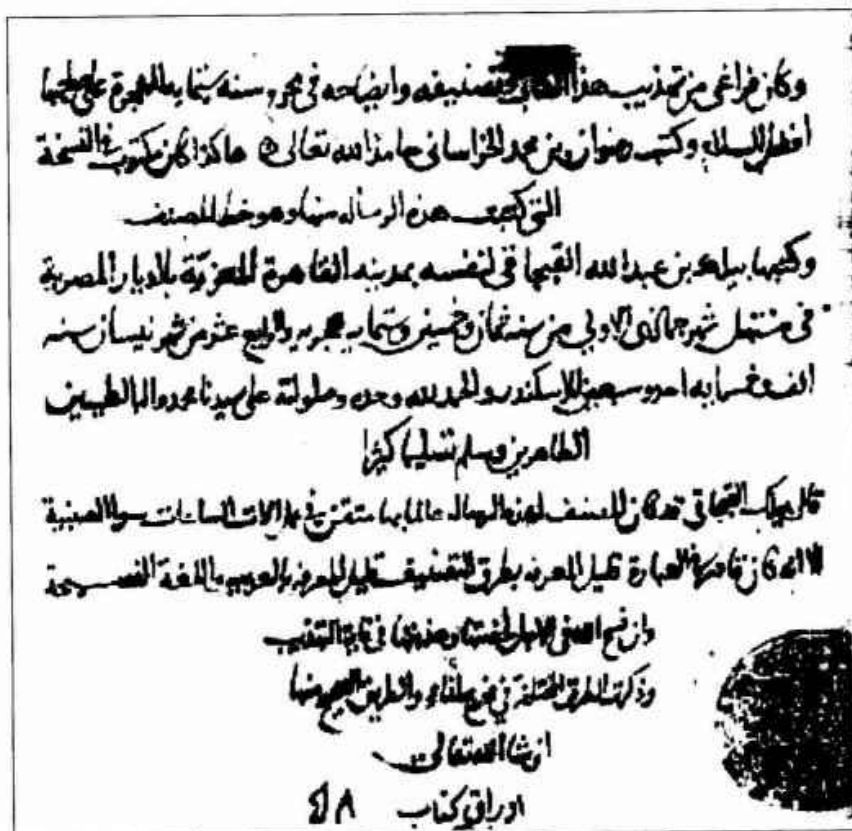 وكان فراغى من تهذيب هذا الكتاب وتصنيفه وايضاحه فى محرم سنه ستمايه للهجرة على صاحبها
افضل السلام وكتب رضوان بن محمد الخراسانى حامدا لله تعالى ه هاكذا كان مكتوب فى النسخة
التى كتبت هذه الرساله منها وهو خط المصنف
وكتبها بيلك بن عبد الله القبجاقى لنفسه بمدينه القاهرة المعزيّة بالديار المصرية
فى مستهل شهر جمادى الاولى من سنه ثمان وخمسين وستمايه هجريه والرابع عشر من شهر نيسان سنه
الف وخمسمايه احد وسبعين للاسكندر والحمد لله وحده وصلواته على سيدنا محمد واله الطيبين
الطاهرين وسلم تسليما كثيرا
قال بيلك القبجاقى قد كان المصنف لهذه الرساله عالما بها متقن فى عمل الات الساعات سوا الصينية
الا انه كان قاصر فى العبارة قليل المعرفه بطرق التصنيف قليل المعرفه بالعربيه باللغة الفصيحة
وان فسح الله فى الاجل وهذبتها فى غاية التهذيب
وذكرت الطرق المختلفة فى والطريق الصحيح منها
ان شا الله تعالى
اوراق كتاب